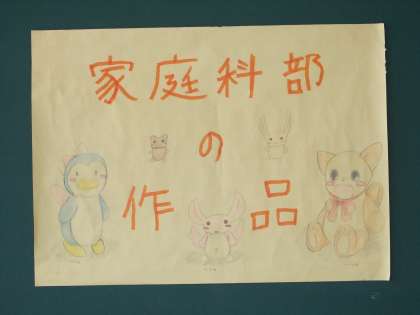 家庭科部
の
作品